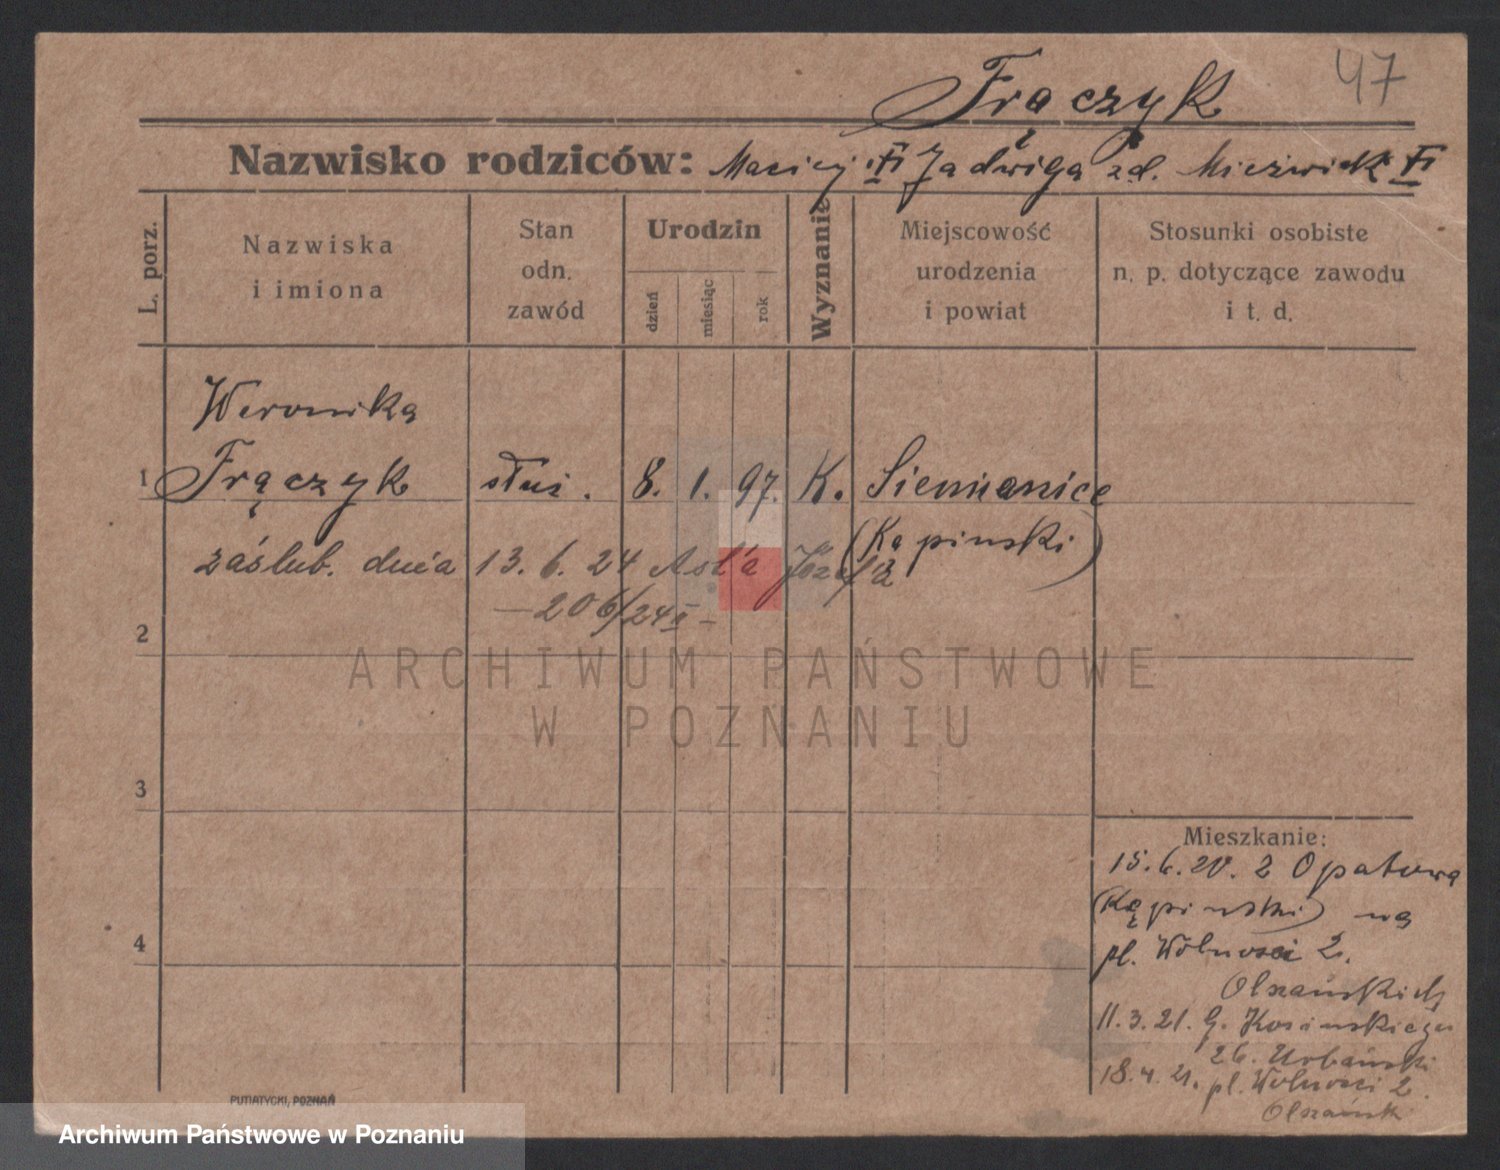 47
Frączyk
Nazwisko rodziców: Maciej Jadwiga zd.
L. porz.
Nazwiska
i imiona
Stan
odn.
zawód
Urodzin
dzień
miesiąc
rok
Wyznanie
Miejscowość
urodzenia
i powiat
Stosunki osobiste
n. p. dotyczące zawodu
i t. d.
Weronika
1 Frączyk służ. 8. 1. 97. K. Siemianice
(Kępiński)
zaślub. dnia 13. 6. 24 Józefa
— 206/24 II —
2
ARCHIWUM PAŃSTWOWE
W POZNANIU
3
4
Mieszkanie:
15. 6. 20. z Opatowa
(Kępiński) na
pl. Wolności 2.
Olszańskich
11. 3. 21. G. Kosińskiego
26. Urbański
18. 4. 21. pl. Wolności 2.
Olszańsk
PUTIATYCKI, POZNAŃ
Archiwum Państwowe w Poznaniu